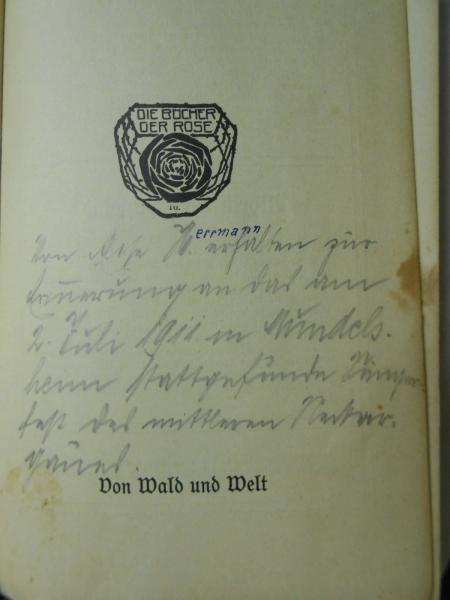 DIE BÜCHER
DER ROSE
Von Rose H. errmann erhalten zur
Erinnerung an das am
2. Juli 1911 in Mundels-
heim stattgefundene Sänger-
fest des mittleren Neckar-
gaues.
Von Wald und Welt